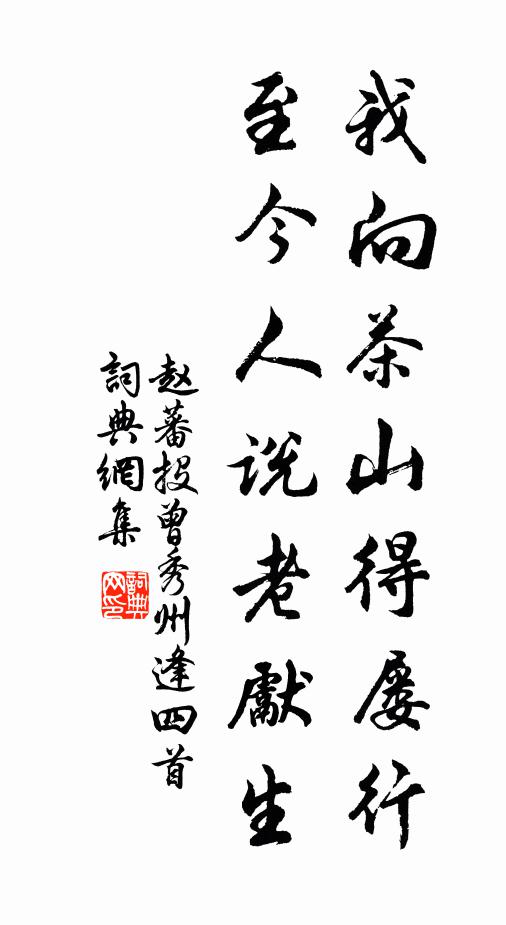 我向茶山得屡行
至今人说老獻生
赵蕃投曾秀州逢四首
詞典網集
詞典网印